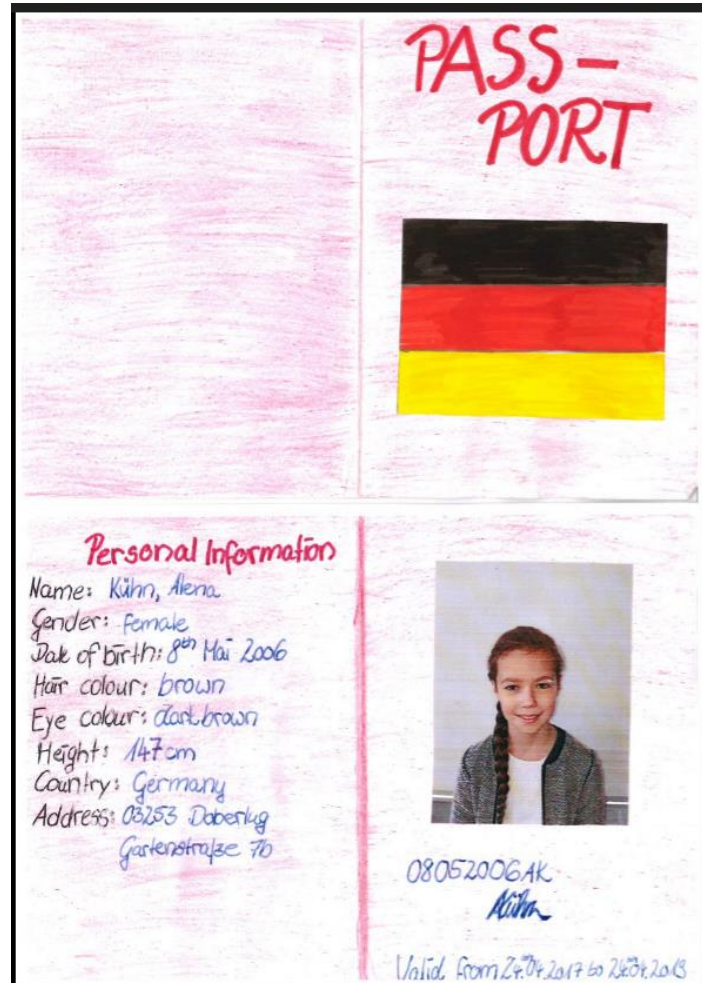 PASS-
PORT
Personal Information
Name: Kühn, Alena
Gender: female
Date of birth: 8th Mai 2006
Hair colour: brown
Eye colour: dark brown
Height: 147cm
Country: Germany
Address: 03253 Doberlug
Gartenstraße 7b
08052006AK
Kühn
Valid from 24.th04.2017 to